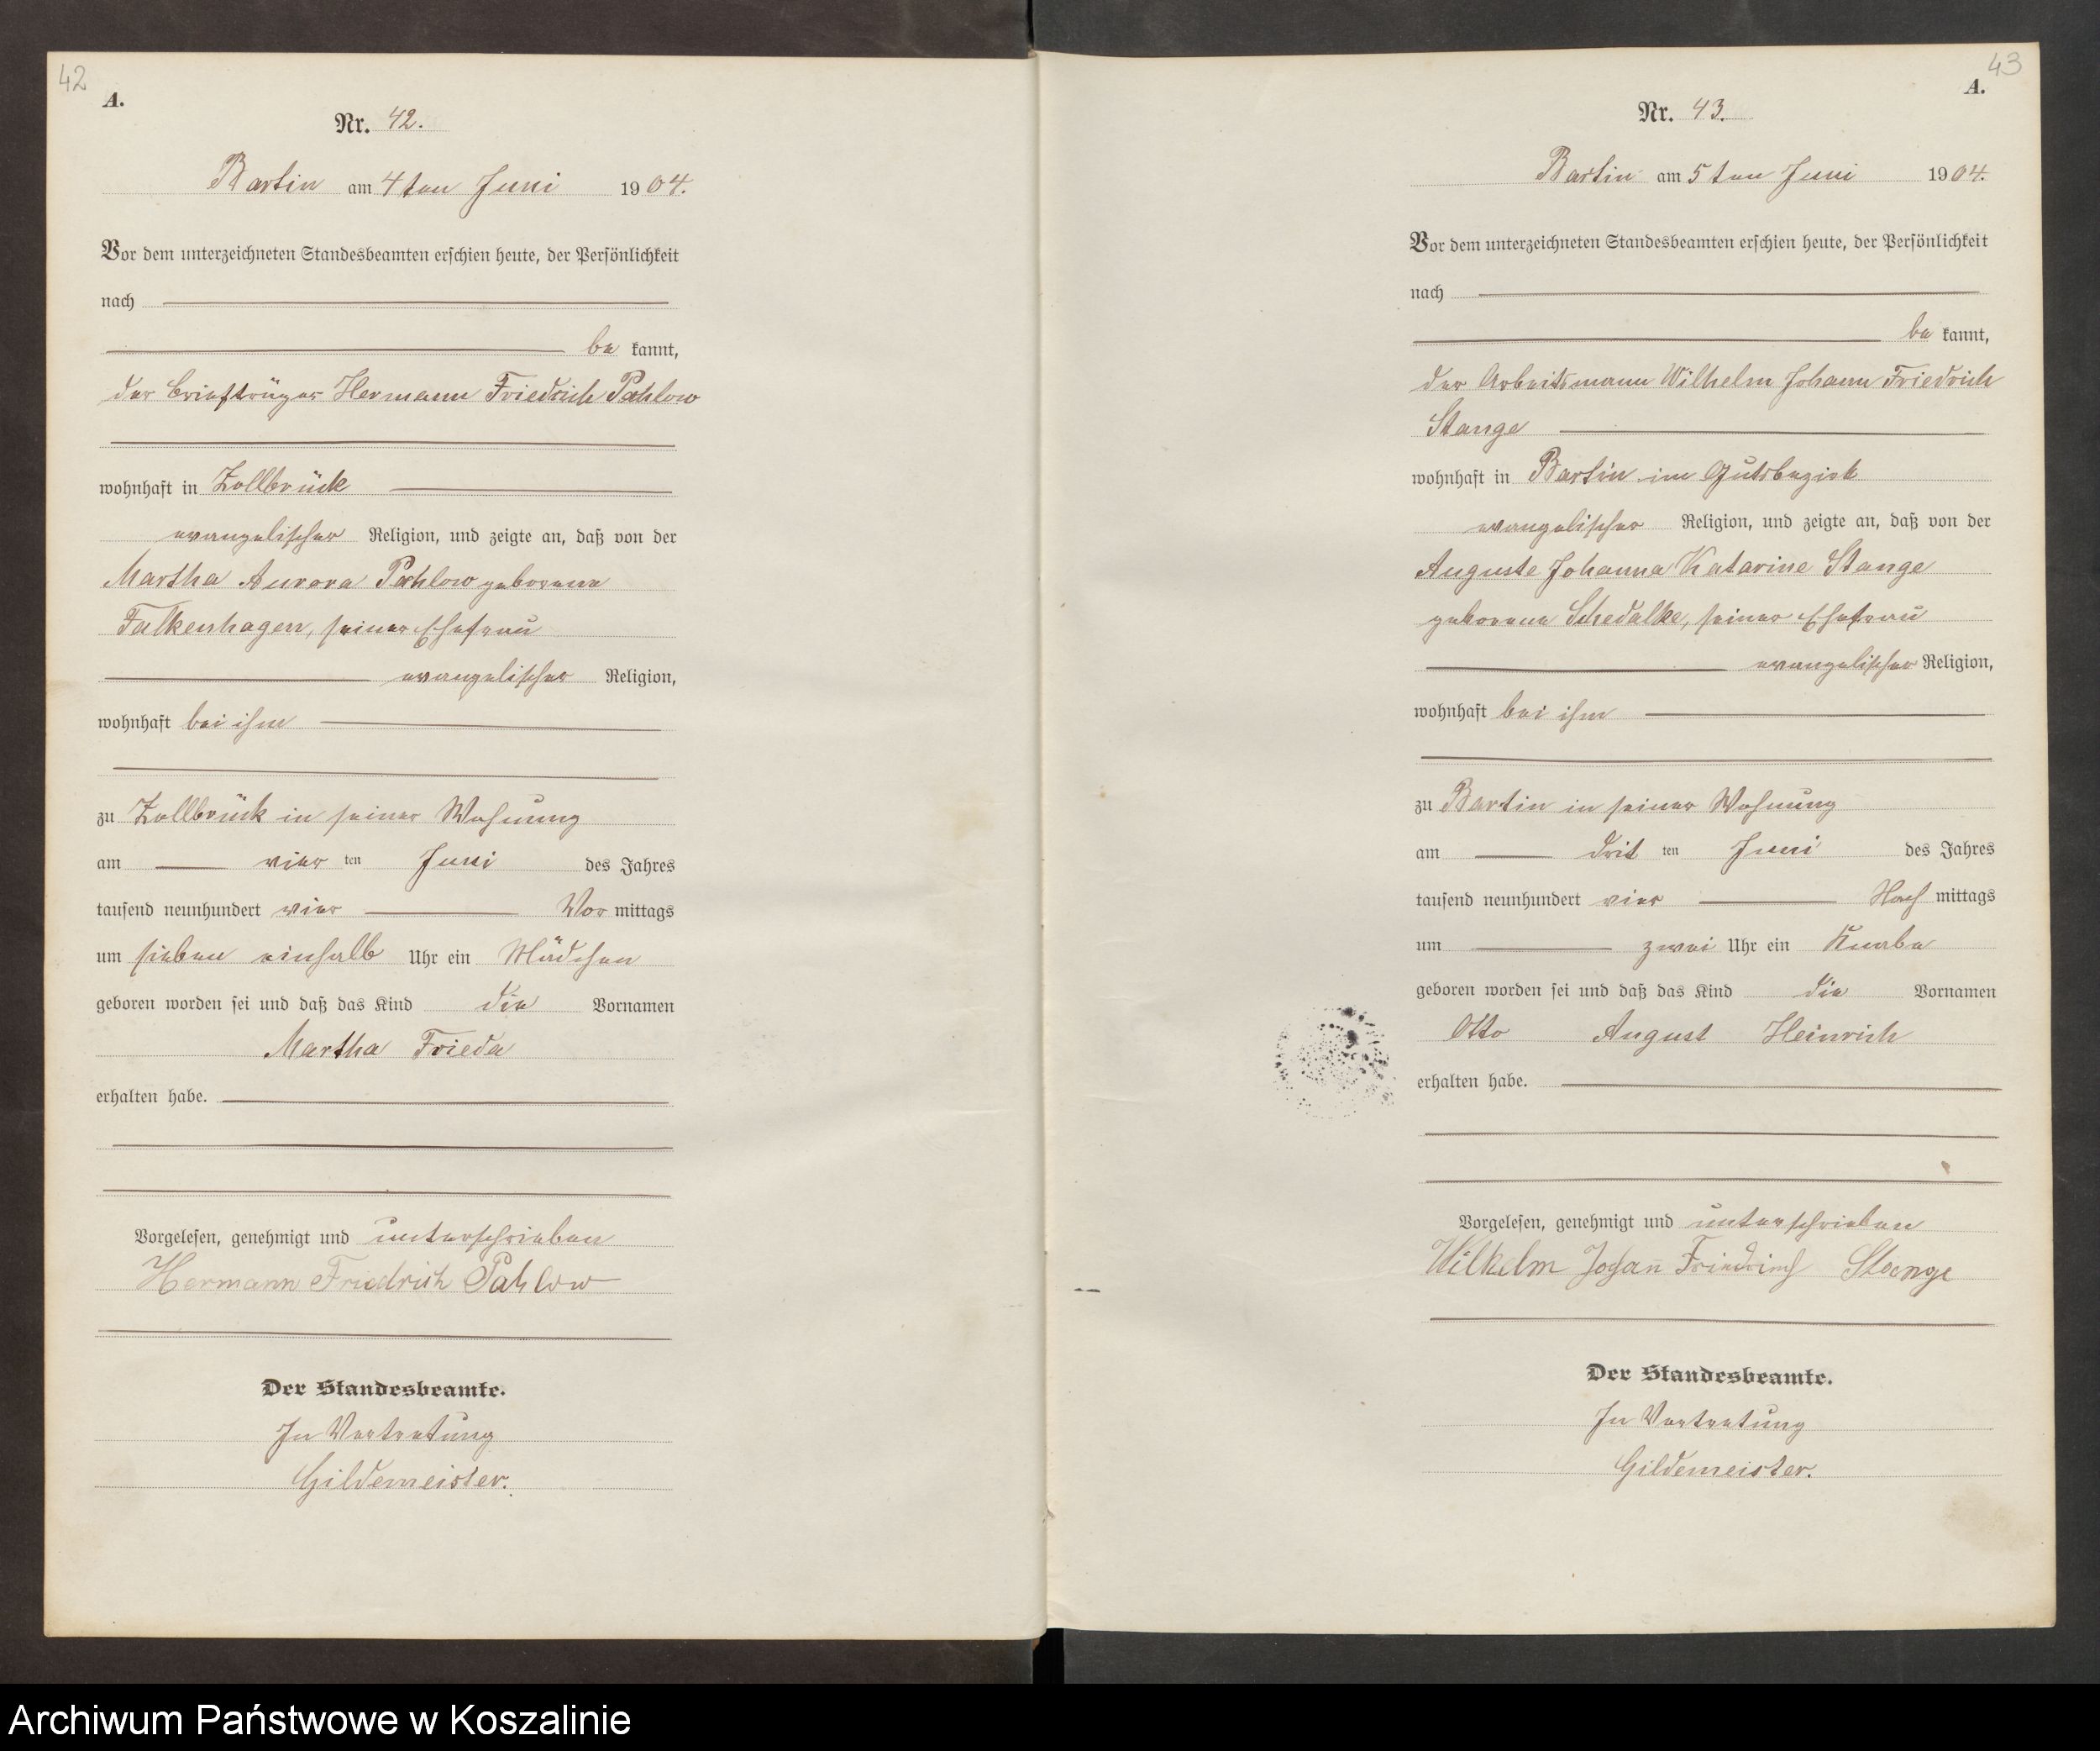 42
A.
Nr. 42.
Bartin am 4ten Juni 1904.
Vor dem unterzeichneten Standesbeamten erschien heute, der Persönlichkeit
nach
be kannt,
der Briefträger Hermann Friedrich Pahlow
wohnhaft in Zollbrück
evangelischer Religion, und zeigte an, daß von der
Martha Aurora Pahlow geborene
Falkenhagen, seiner Ehefrau
evangelischer Religion,
wohnhaft bei ihm
zu Zollbrück in seiner Wohnung
am vier ten Juni des Jahres
tausend neunhundert vier Vor mittags
um sieben einhalb Uhr ein Mädchen
geboren worden sei und daß das Kind die Vornamen
Martha Frieda
erhalten habe.
Vorgelesen, genehmigt und unterschrieben
Hermann Friedrich Pahlow
Der Standesbeamte.
In Vertretung
Gildemeister.
43
A.
Nr. 43.
Bartin am 5ten Juni 1904.
Vor dem unterzeichneten Standesbeamten erschien heute, der Persönlichkeit
nach
be kannt,
der Arbeitsmann Wilhelm Johann Friedrich
Stange
wohnhaft in Bartin im Gutsbezirk
evangelischer Religion, und zeigte an, daß von der
Auguste Johanna Katarine Stange
geborene Schedalke, seiner Ehefrau
evangelischer Religion,
wohnhaft bei ihm
zu Bartin in seiner Wohnung
am drit ten Juni des Jahres
tausend neunhundert vier Nach mittags
um zwei Uhr ein Knabe
geboren worden sei und daß das Kind die Vornamen
Otto August Heinrich
erhalten habe.
Vorgelesen, genehmigt und unterschrieben
Wilhelm Johann Friedrich Stange
Der Standesbeamte.
In Vertretung
Gildemeister.
Archiwum Państwowe w Koszalinie